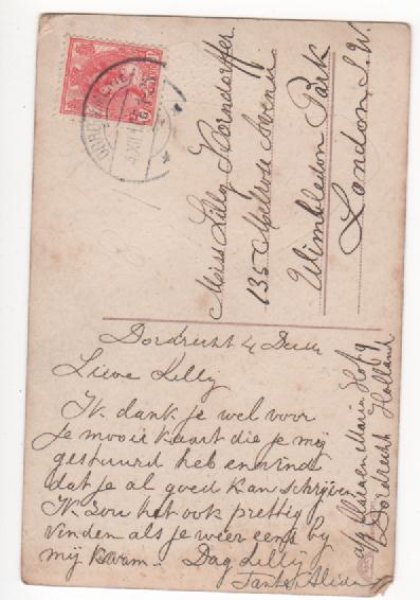 Miss Lilly Korndorffer
135 Melrose Avenue
Wimbledon Park
London S.W.
Dordrecht 4 Dec
Lieve Lilly
Ik dank je wel voor
je mooie kaart die je mij
gestuurd heb en vind
dat je al goed kan schrijven
Ik zou het ook prettig
vinden als je weer eens by
mij kwam. Dag Lilly
Tante Alida
Dordrecht Holland